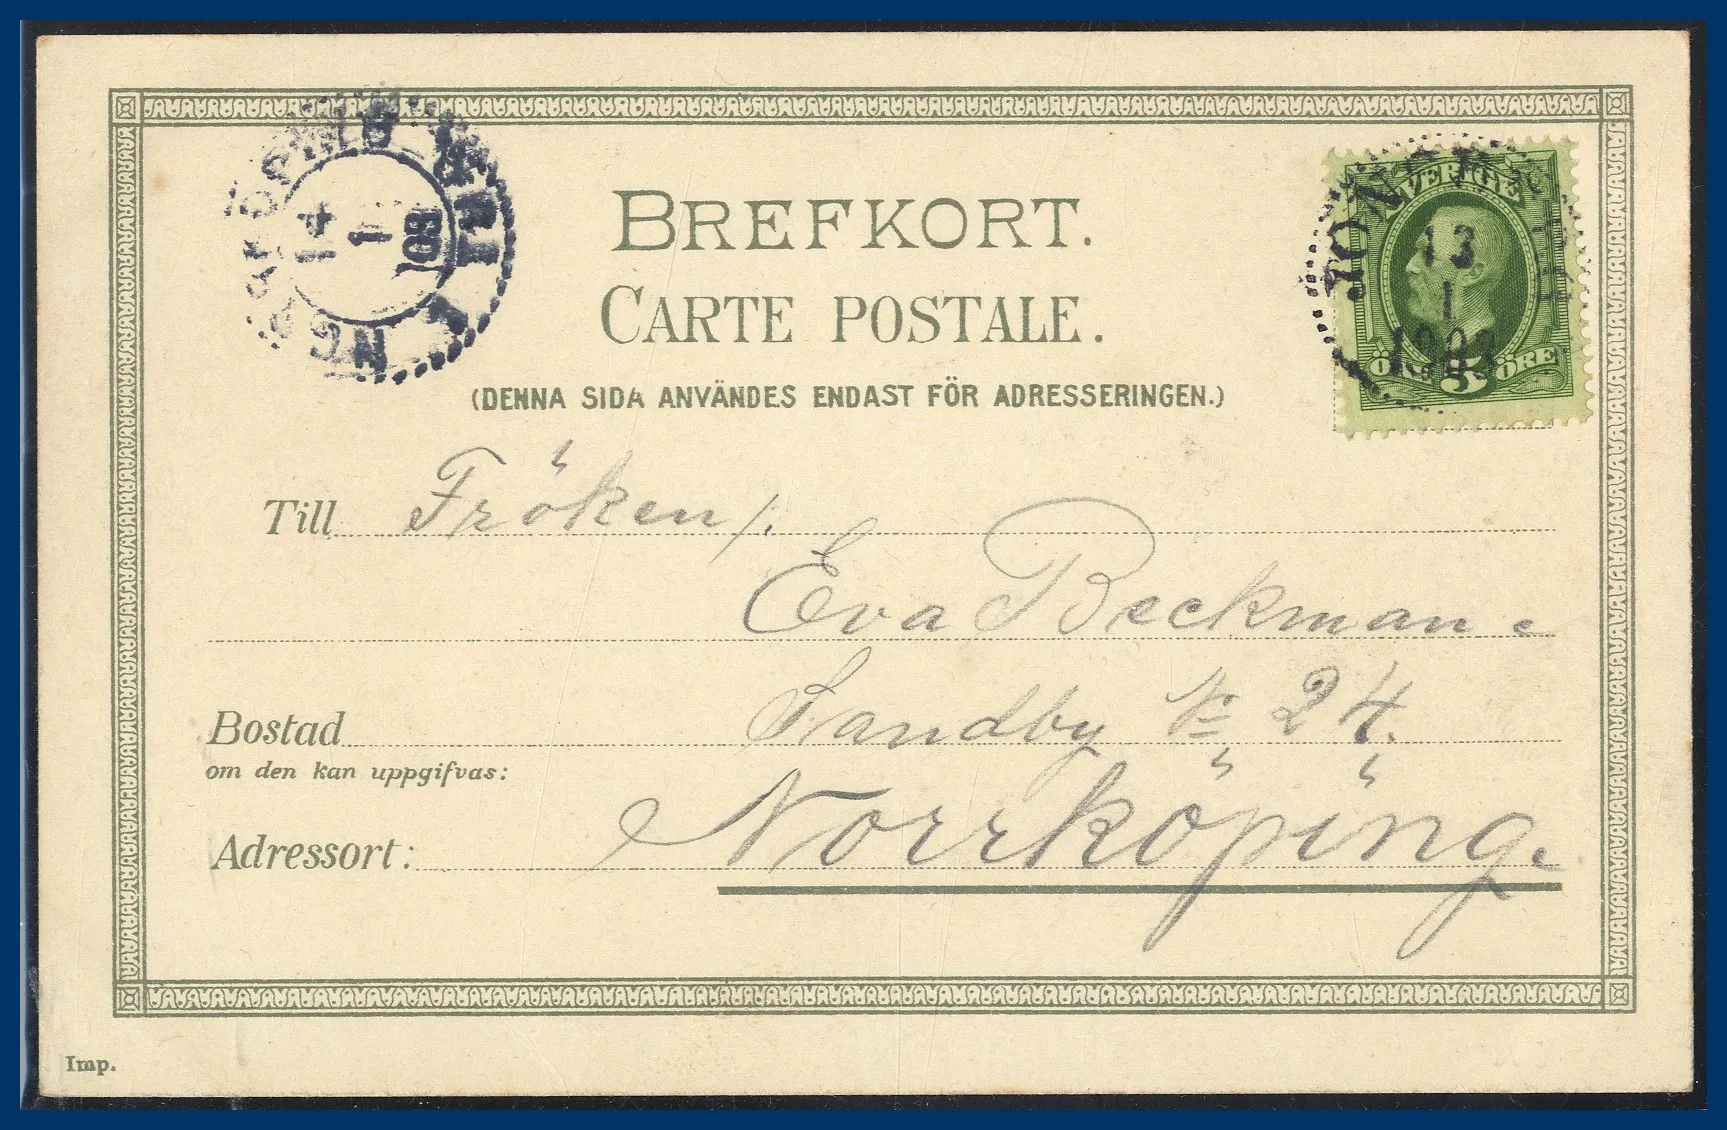 BREFKORT.
CARTE POSTALE.
(DENNA SIDA ANVÄNDES ENDAST FÖR ADRESSERINGEN.)
SVERIGE
13
1
1903
ÖRE 5 ÖRE
14
1
03
Till Fröken /.
Eva Beckman.
Bostad Sandby № 24.
om den kan uppgifvas:
Adressort: Norrköping.
Imp.